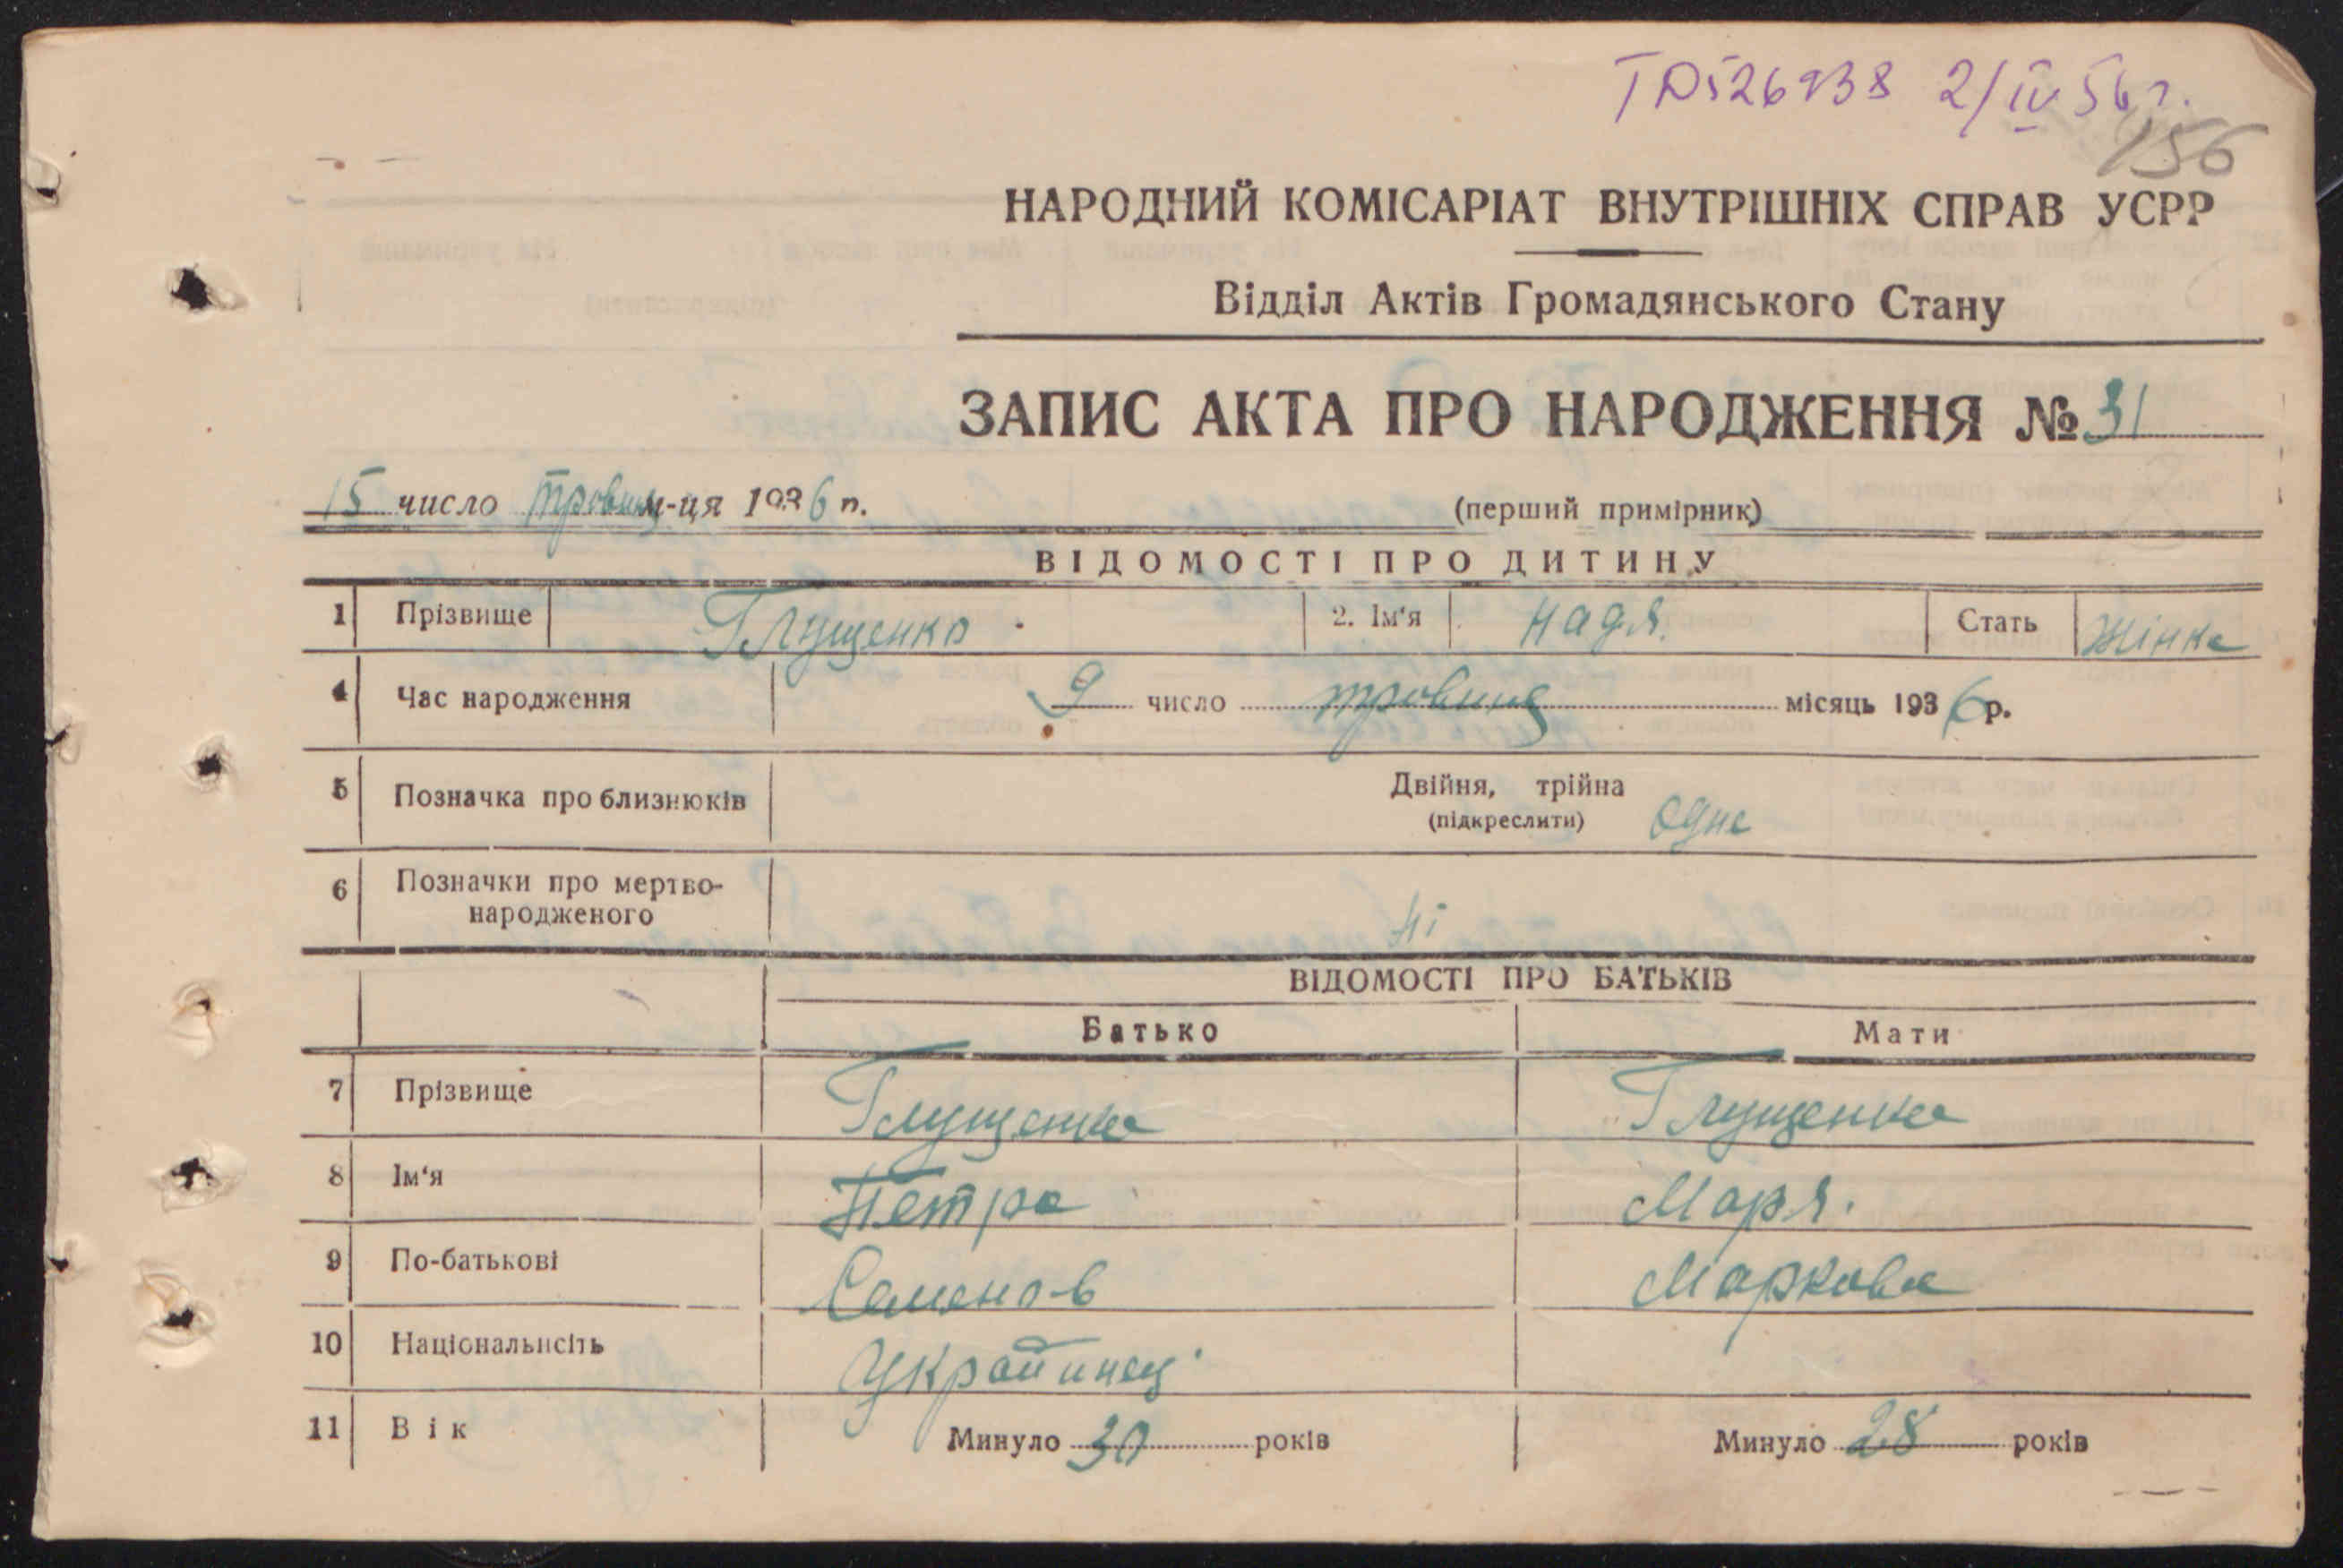 2/IV 56 г.
156
НАРОДНИЙ КОМІСАРІАТ ВНУТРІШНІХ СПРАВ УСРР
Відділ Актів Громадянського Стану
ЗАПИС АКТА ПРО НАРОДЖЕННЯ № 31
15 число тровня м-ця 1936 р. (перший примірник)
ВІДОМОСТІ ПРО ДИТИНУ
1 Прізвище Глущенко 2. Ім'я Надя. Стать Жінка
4 Час народження 9 число тровня місяць 1936 р.
5 Позначка про близнюків Двійня, трійна
(підкреслити) одне
6 Позначки про мертво-
народженого ні
ВІДОМОСТІ ПРО БАТЬКІВ
Батько Мати
7 Прізвище Глущенко Глущенко
8 Ім'я Петро Маря.
9 По-батькові Семенов Маркова
10 Національнсіть Украйинец
11 Вік Минуло 30 років Минуло 28 років